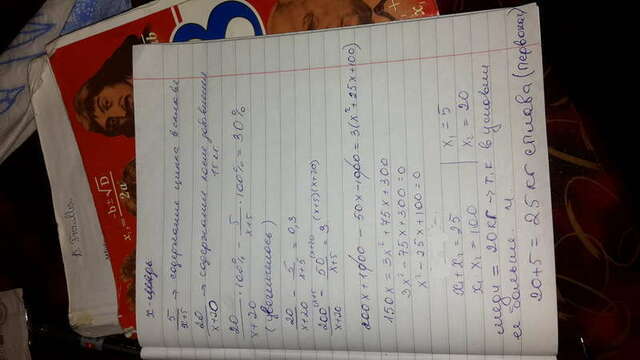 x - медь
5/(x+5) → содержание цинка в сплаве
20/(x+20) → содержание после добавления 15 кг
20/(x+20) · 100% - 5/(x+5) · 100% = 30%
20/(x+20) - 5/(x+5) = 0,3
200^(x+5)/(x+20) - 50^(x+20)/(x+5) = 3^(x+5)(x+20)
200x+1000-50x-1000=3(x²+25x+100)
150x=3x²+75x+300
3x²-75x+300=0
x²-25x+100=0
x₁+x₂=25 x₁=5
x₁·x₂=100 x₂=20
медь=20кг → т.к в условии
ее больше.
20+5=25 кг сплава (первонач)
x₁ = (-b±√D)/2a